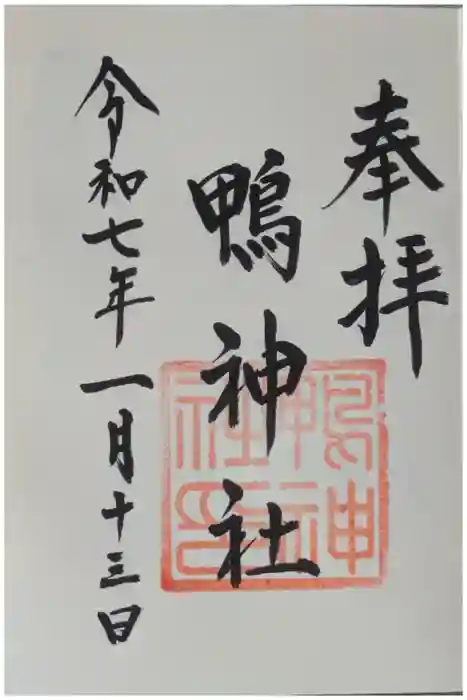 奉拝
鴨神社
令和七年一月十三日